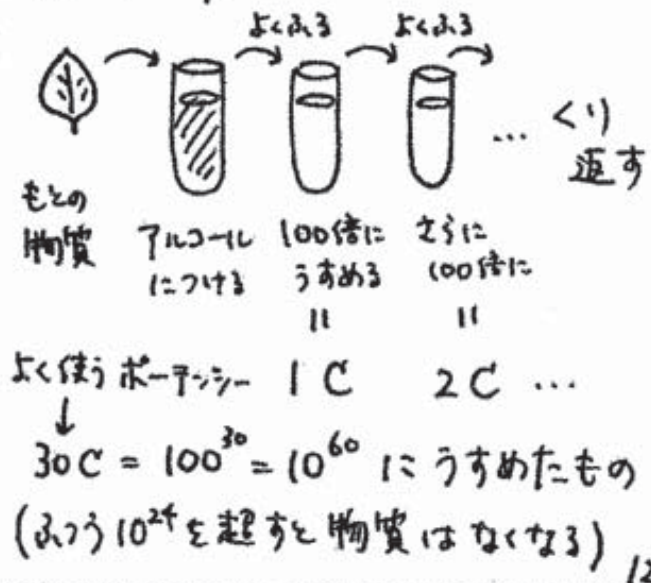 よくふる よくふる
… くり
返す
もとの
物質
アルコール
につける
100倍に
うすめる
さらに
100倍に
= =
よく使うポーテンシー 1C 2C …
↓
30C = 100³⁰ = 10⁶⁰ にうすめたもの
(ふつう10²⁴を超すと物質はなくなる)